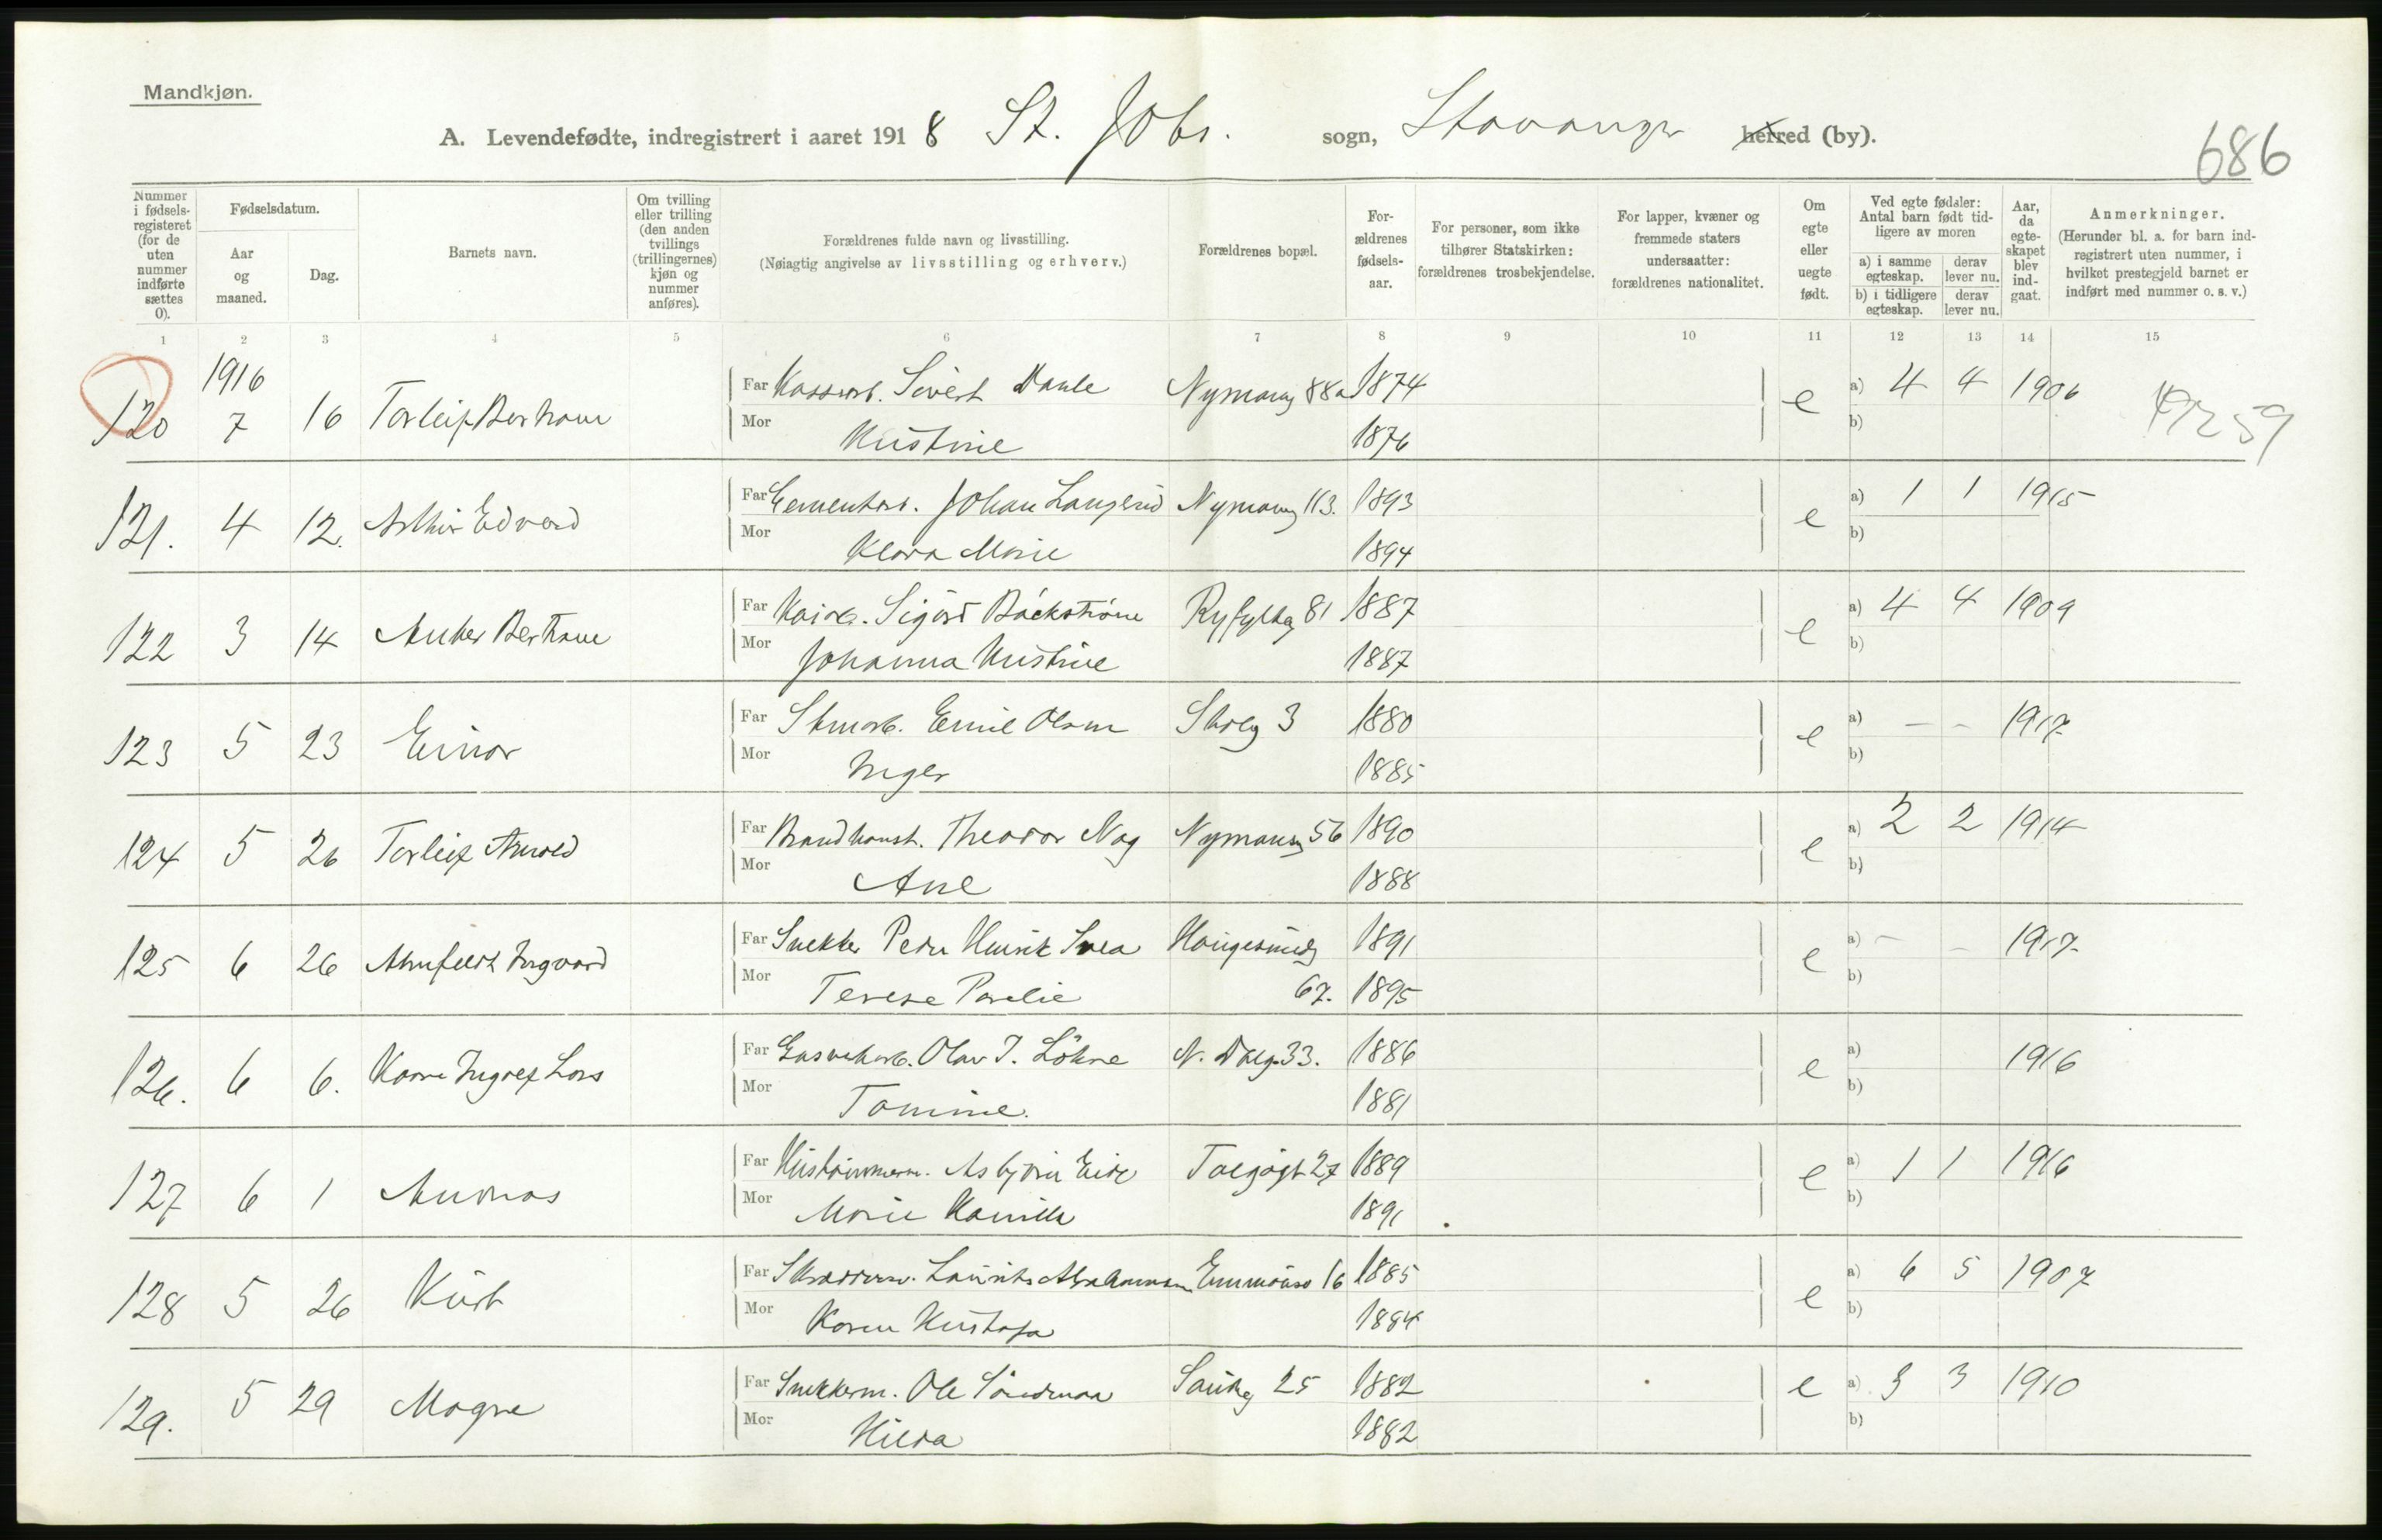 Mandkjøn.
A. Levendefødte, indregistrert i aaret 1918 St. Johs. sogn, Stavanger herred (by).
686
Nummer i fødselsregisteret (for de uten nummer indførte sættes 0).
Fødselsdatum.
Aar og maaned.
Dag.
Barnets navn.
Om tvilling eller trilling (den anden tvillings (trillingernes) kjøn og nummer anføres).
Forældrenes fulde navn og livsstilling.
(Nøiagtig angivelse av livsstilling og erhverv.)
Forældrenes bopæl.
Forældrenes fødselsaar.
For personer, som ikke tilhører Statskirken: forældrenes trosbekjendelse.
For lapper, kvæner og fremmede staters undersaatter: forældrenes nationalitet.
Om egte eller uegte født.
Ved egte fødsler: Antal barn født tidligere av moren
a) i samme egteskap.
derav lever nu.
b) i tidligere egteskap.
derav lever nu.
Aar, da egteskapet blev indgaat.
Anmerkninger.
(Herunder bl. a. for barn indregistrert uten nummer, i hvilket prestegjeld barnet er indført med nummer o. s. v.)
1 2 3 4 5 6 7 8 9 10 11 12 13 14 15
1916
120 7 16 Torleif Bertram Far Sivert 88a 1874 e a) 4 4 1906
Mor Kristine 1876 b)
121. 4 12. Arthur Edvard Far Cementarb. Johan 113. 1893 e a) 1 1 1915
Mor Klara Marie 1894 b)
122 3 14 Anker Bertram Far Sigurd Bäckström 81 1887 e a) 4 4 1909
Mor Johanna Kristine 1887 b)
123 5 23 Einar Far Emil Olsen 3 1880 e a) – – 1917
Mor Inger 1885 b)
124 5 26 Torleif Arnold Far Brandkonst. Theodor Nag Nymansg 56 1890 e a) 2 2 1914
Mor Ane 1888 b)
125 6 26 Arnfeldt Ingvard Far Snekker Peder Henrik Svea Haugesundg 1891 e a) – – 1917
Mor Terese 67. 1895 b)
126. 6 6. Kaare Ingolf Lars Far Olav T. Løkne N. Dalg. 33. 1886 e a) 1916
Mor Tomine. 1881 b)
127 6 1 Andreas Far Hustømmerm. Asbjørn Eide 27 1889 e a) 1 1 1916
Mor Marie Kamilla 1891 b)
128 5 26 Kurt Far Laurits Abrahamsen Emmausv 16 1885 e a) 6 5 1907
Mor Karen 1884 b)
129. 5 29 Magne Far Snekkerm. Ole 25 1882 e a) 3 3 1910
Mor Hilda 1882 b)